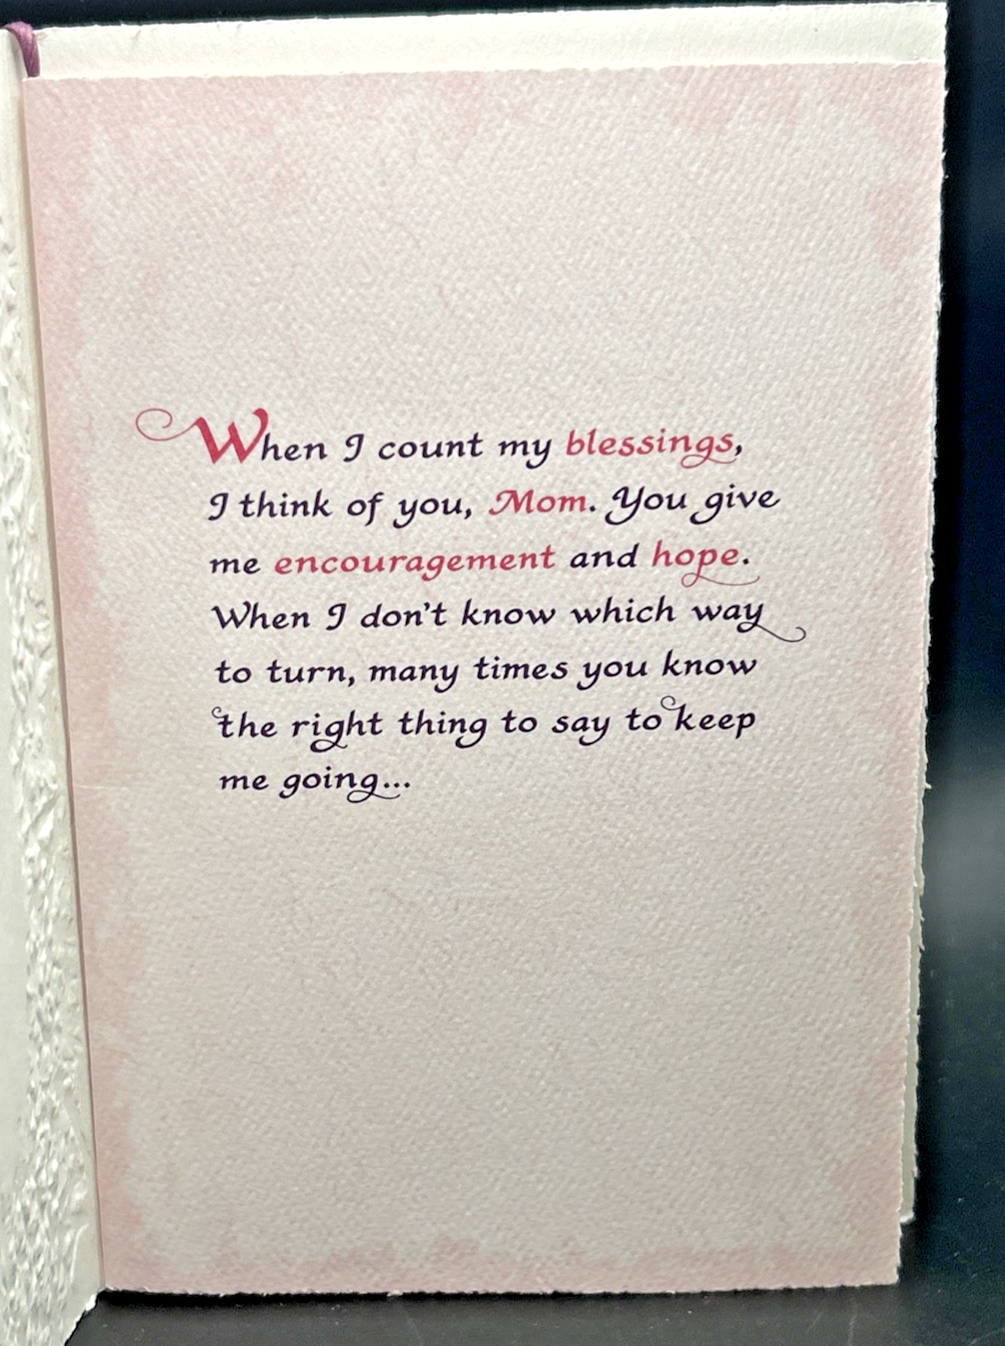 When I count my blessings,
I think of you, Mom. You give
me encouragement and hope.
When I don't know which way
to turn, many times you know
the right thing to say to keep
me going...